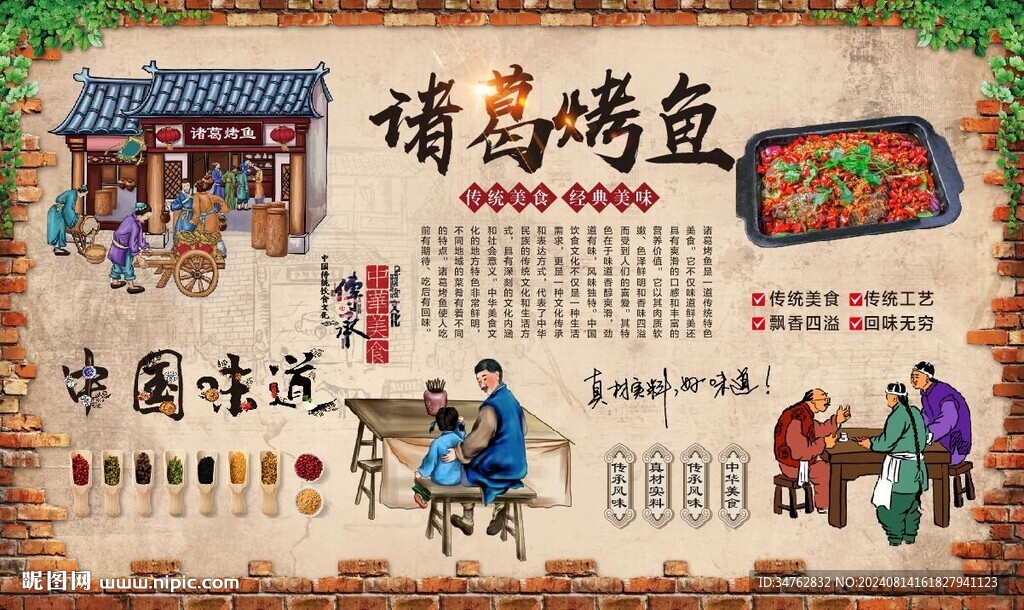 诸葛烤鱼
诸葛烤鱼
传统美食 经典美味
诸葛烤鱼是一道传统特色
美食。它不仅味道鲜美还
具有爽滑的口感和丰富的
营养价值。它以其肉质软
嫩、色泽鲜明和香味四溢
而受到人们的喜爱。其特
色在于味道香醇爽滑，劲
道有味，风味独特。中国
饮食文化不仅是一种生活
需求，更是一种文化传承
和表达方式，代表了中华
民族的传统文化和生活方
式，具有深刻的文化内涵
和社会意义。中华美食文
化的地方特色非常鲜明，
不同地域的菜肴有着不同
的特点。诸葛烤鱼使人吃
前有期待、吃后有回味。
传统美食
传统工艺
飘香四溢
回味无穷
中国传统饮食文化
传承
中華美食
文化
中国味道
真材实料，好味道！
传承风味
真材实料
传承风味
中华美食
昵图网 www.nipic.com
ID:34762832 NO:20240814161827941123